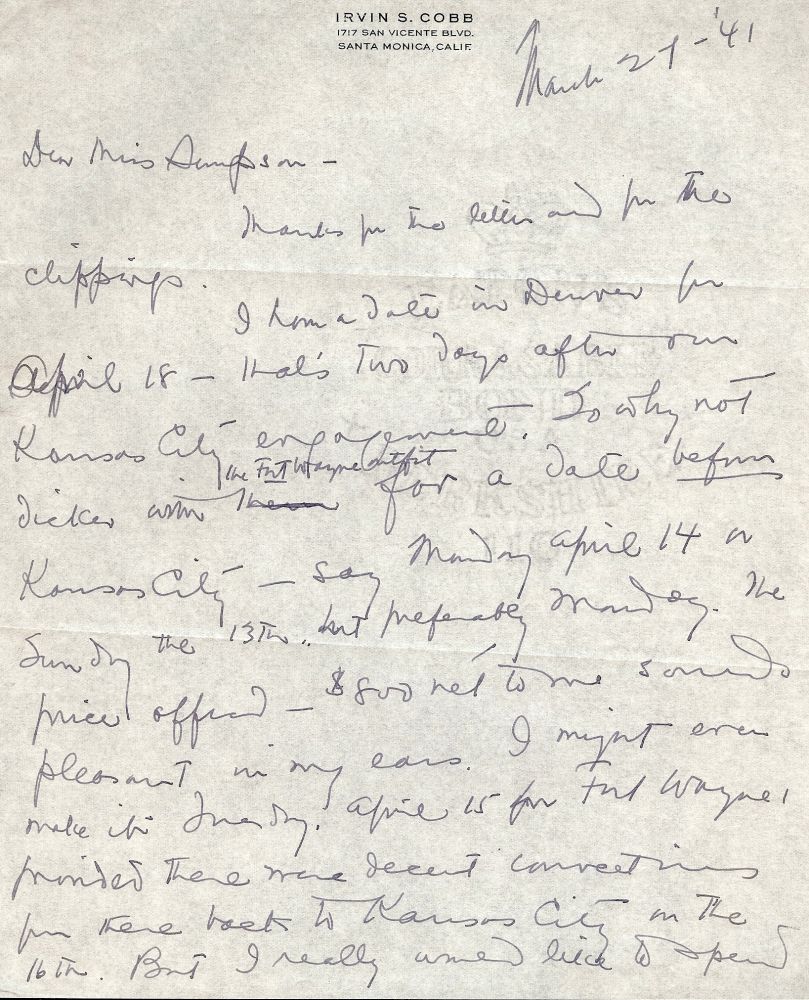 IRVIN S. COBB
1717 SAN VICENTE BLVD.
SANTA MONICA, CALIF.
March 27 - '41
Dear Miss Sampson -
Thanks for the letter and for the
clippings.
I have a date in Denver for
April 18 - that's two days after our
Kansas City engagement. So why not
the Fort Wayne outfit
dicker with for a date before
Kansas City - say Monday April 14 or
Sunday the 13th, but preferably Monday. The
price offered - $800 net to me sounds
pleasant in my ears. I might even
make it Tuesday, April 15 for Fort Wayne,
provided there were decent connections
from there back to Kansas City on the
16th. But I really would like to spend